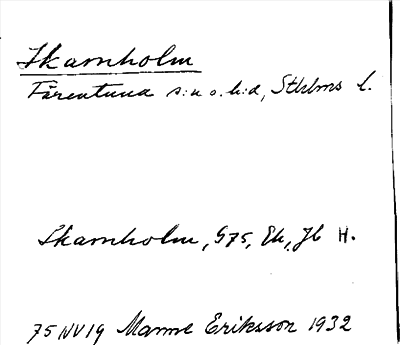 Skarnholm
Färentuna s:n o. h:d, Sthlms l.
Skarnholm, G75, Ek, Jb H.
75 NV 19 Manne Eriksson 1932